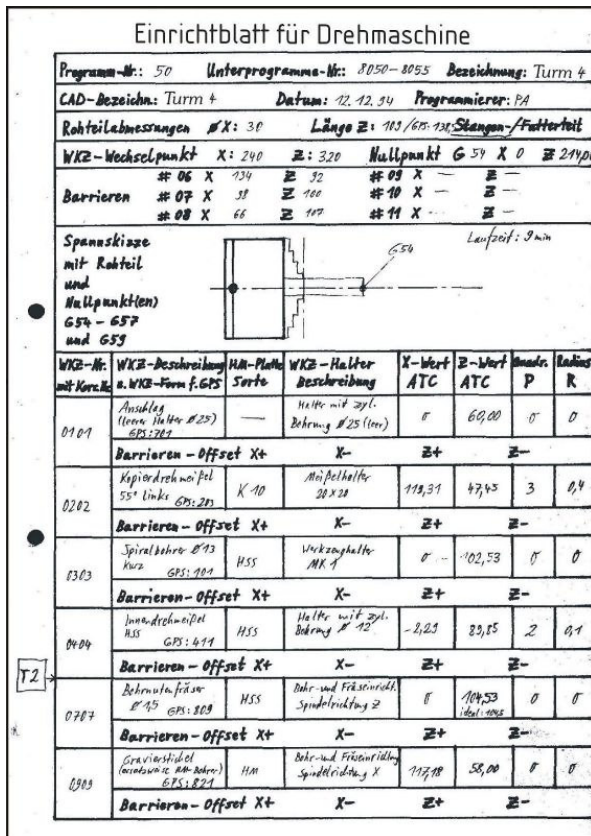 Einrichtblatt für Drehmaschine
Programm-Nr.: 50 Unterprogramme-Nr.: 8050-8055 Bezeichnung: Turm 4
CAD-Bezeichn.: Turm 4 Datum: 12.12.94 Programmierer: PA
Rohteilabmessungen ø X: 30 Länge Z: 109/GPS: 138 Stangen-/Futterteil
WKZ-Wechselpunkt X: 240 Z: 320 Nullpunkt G 54 X 0 Z 214
# 06 X 134 Z 92 # 09 X — Z —
Barrieren # 07 X 98 Z 100 # 10 X — Z —
# 08 X 66 Z 107 # 11 X — Z —
Spannskizze
mit Rohteil
und
Nullpunkt(en)
G54 - G57
und G59
Laufzeit: 9 min
G54
WKZ-Nr. mit Korr.Nr. WKZ-Beschreibung u. WKZ-Form f. GPS HM-Platte Sorte WKZ-Halter Beschreibung X-Wert ATC Z-Wert ATC Quadr. P Radius R
0101 Anschlag (leerer Halter ø 25) GPS: 701 — Halter mit zyl. Bohrung ø 25 (leer) 0 60,00 0 0
Barrieren - Offset X+ X- Z+ Z-
0202 Kopierdrehmeißel 55° links GPS: 203 K 10 Meißelhalter 20 x 20 119,31 47,45 3 0,4
Barrieren - Offset X+ X- Z+ Z-
0303 Spiralbohrer ø 13 kurz GPS: 101 HSS Werkzeughalter MK 1 0 102,53 0 0
Barrieren - Offset X+ X- Z+ Z-
0404 Innendrehmeißel HSS GPS: 411 HSS Halter mit zyl. Bohrung ø 12 -2,29 89,85 2 0,1
Barrieren - Offset X+ X- Z+ Z-
T2
0707 Bohrnutenfräser ø 15 GPS: 809 HSS Bohr- und Fräseinricht. Spindelrichtung Z 0 104,53 ideal: 104,5 0 0
Barrieren - Offset X+ X- Z+ Z-
0909 Gravierstichel (ersatzweise HM-Bohrer) GPS: 821 HM Bohr- und Fräseinrichtung Spindelrichtung X 117,18 58,00 0 0
Barrieren - Offset X+ X- Z+ Z-